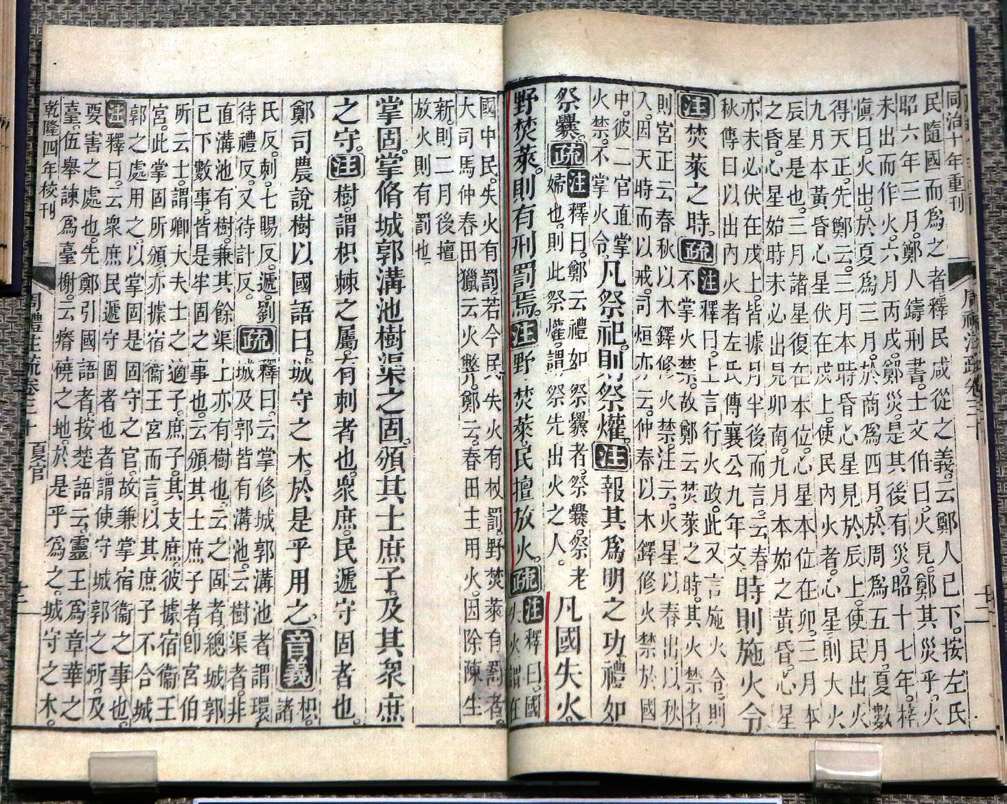 同治十年重刊
周禮注疏卷三十
民隨國而為之者釋民咸從之義云鄭人已下按左氏
昭六年三月鄭人鑄刑書士文伯曰火見鄭其災乎火
未出而作火六月丙戌鄭災是其後有災昭十七年梓
慎曰火出於夏爲三月於商爲四月於周爲五月夏數
得天正先鄭云三月本時昏心星見於辰上使民出火
九月本黃昏心星伏在戌上使民內火者心則大火
辰星是也三月諸星復在本位心星本位在卯三月本
之昏心星始時未必出見卯南九月本始之黃昏心星
亦未必伏在戌上皆據月半後而言云春
秋傳曰以出內火者左氏傳襄公九年文
時則施火令
注焚萊之時疏
注釋曰上言行火政此又言施火令則
不掌火禁故鄭云焚萊之時其火禁者
則宮正云春秋以木鐸修火禁注云火星以春出以秋
入因天時而以戒司烜亦云仲春以木鐸修火禁於國
中彼二官直掌
火禁不掌火令
凡祭祀則祭爟注報其爲明之功禮如
祭爨疏
注釋曰鄭云禮如祭爨者祭爨祭老
婦也則此祭爟謂祭先出火之人
凡國失火
野焚萊則有刑罰焉注野焚萊民擅放火疏
注釋曰國
國中民失火有罰若今民失火有杖罰野焚萊有罰者
大司馬仲春田獵云火弊鄭云春田主用火因除陳生
新則二月後擅
放火則有罰也
掌固掌脩城郭溝池樹渠之固頒其士庶子及其眾庶
之守注樹謂枳棘之屬有刺者也眾庶民遞守固者也
鄭司農說樹以國語曰城守之木於是乎用之音義枳諸
氏反刺七賜反遞劉
待禮反又待計反
疏
釋曰云掌修城郭溝池者謂環
城及郭皆有溝池云樹渠者非
直溝池有樹兼其餘渠上亦有樹也云之固者總城郭
已下數事皆是牢固之事也云頒其士庶子者卽宮伯
所云士謂卿大夫士之適子庶子其支庶彼據宿衞王
宮此掌固所頒亦據宿衞王宮而言以其庶子不合城
郭之處用之以掌固是固守之官故兼掌宿衞之事也
注釋曰云眾庶民遞守固者也者使守城郭之所及
要害之處也先鄭引國語者按楚語云靈王爲章華之
臺伍舉諫爲臺榭云瘠磽之地於是乎爲之城守之木
乾隆四年校刊
周禮注疏卷三十 夏官